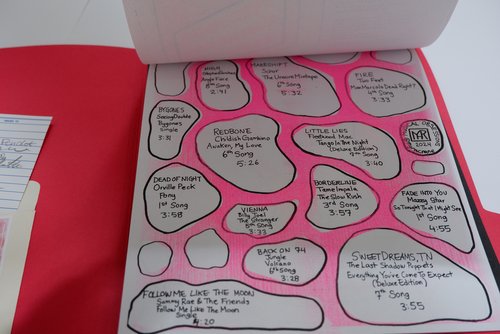 5th Song
2:41
MAKESHIFT
6th Song
5:32
FIRE
Two Feet
Max Marco Is Dead Right?
4th Song
3:33
BYGONES
Seeing Double
Bygones
Single
3:31
REDBONE
Childish Gambino
Awaken, My Love
6th Song
5:26
LITTLE LIES
Fleetwood Mac
Tango In The Night
(Deluxe Edition)
9th Song
3:40
MR
2024
DEAD OF NIGHT
Orville Peck
Pony
1st Song
3:58
BORDERLINE
Tame Impala
The Slow Rush
3rd Song
3:57
FADE INTO YOU
Mazzy Star
So Tonight That I Might See
1st Song
4:55
VIENNA
Billy Joel
The Stranger
5th Song
3:33
BACK ON 74
Jungle
Volcano
6th Song
3:28
SWEET DREAMS, TN
The Last Shadow Puppets
Everything You've Come To Expect
(Deluxe Edition)
7th Song
3:55
FOLLOW ME LIKE THE MOON
Sammy Rae & The Friends
Follow Me Like The Moon
Single
4:20